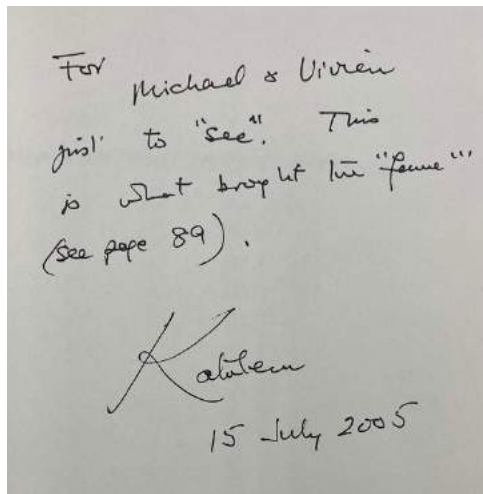 For
Michael & Vivien
just to "see". This
is what brought the "fame"
(see page 89).
15 July 2005